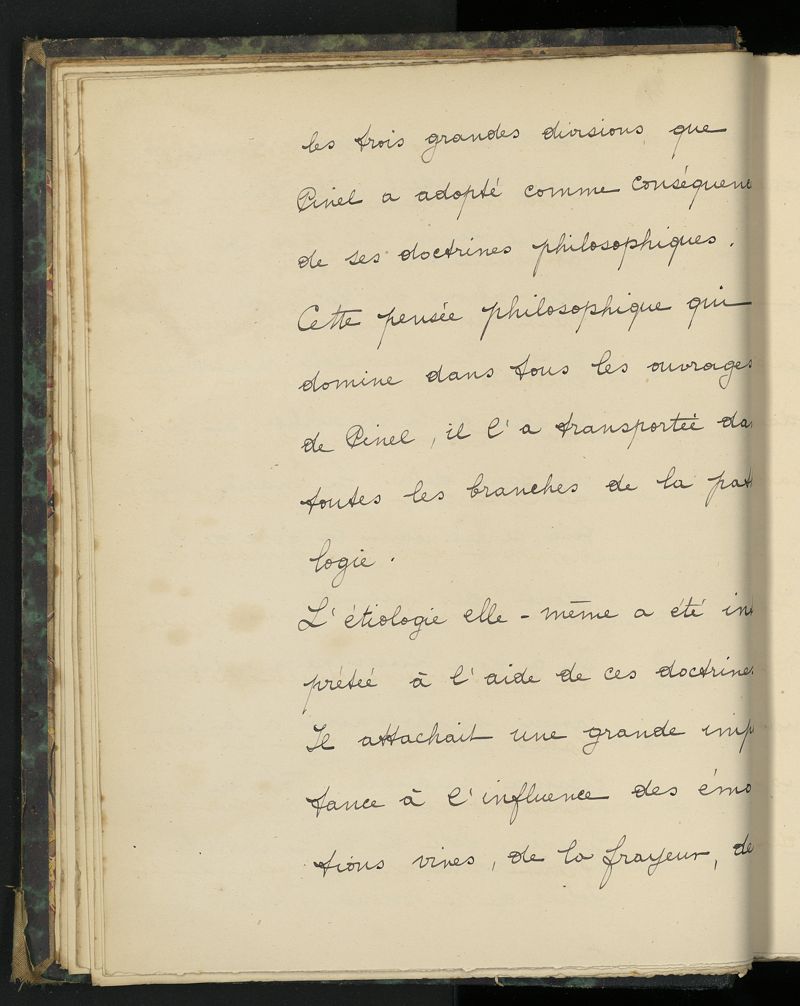 les trois grandes divisions que
Pinel a adopté comme conséquenc
de ses doctrines philosophiques.
Cette pensée philosophique qui
domine dans tous les ouvrages
de Pinel, il l'a transportée da
toutes les branches de la pat
logie.
L'étiologie elle-même a été int
prétée à l'aide de ces doctrines
Il attachait une grande imp
tance à l'influence des émo
tions vives, de la frayeur, de